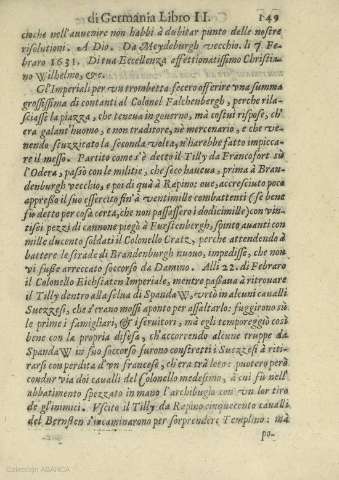 di Germania Libro II. 149
cioche nell'auuenire non habbi à dubitar punto delle nostre
risolutioni. A Dio. Da Meydeburgh vecchio. li 7. Fe-
braro 1631. Di tua Eccellenza affettionatissimo Christia-
no Wilhelmo, &c.
Gl'Imperiali per vn trombetta fecero offerire vna summa
grossissima di contanti al Colonel Falchenbergh, perche rila-
sciasse la piazza, che teneua in gouerno, mà costui rispose, ch'
era galant'huomo, e non traditore, nè mercenario, e che ve-
nendo stuzzicato la seconda volta, n'harebbe fatto impicca-
re il messo. Partito come s'è detto il Tilly da Francofort sù
l'Odera, passò con le militie, che seco haueua, prima à Bran-
denburgh vecchio, e poi di quà à Rapino: oue, accresciuto poco
appresso il suo essercito fin'à ventimille combattenti (se bene
fù detto per cosa certa, che non passassero i dodicimille) con vin-
tisei pezzi di cannone piegò à Furstenbergh, spinto auanti con
mille ducento soldati il Colonello Cratz, perche attendendo à
battere le strade di Brandenburgh nuouo, impedisse, che non
vi fusse arreccato soccorso da Damino. Alli 22. di Febraro
il Colonello Eichstaten Imperiale, mentre passaua à ritrouare
il Tilly dentro alla selua di SpandaW, vrtò in alcuni caualli
Suezzesi, che s'erano messi aponto per assaltarlo: fuggirono sù
le prime i famigliari, & i seruitori, mà egli temporeggiò così
bene con la propria difesa, ch'accorrendo alcune truppe da
SpandaW in suo soccorso furono constretti i Suezzesi à riti-
rarsi con perdita d'vn francese, ch'era trà loro: puotero però
condur via doi caualli del Colonello medesimo, à cui fù nell'
abbattimento spezzato in mano l'archibugio con vn lor tiro
de gl'inimici. Vscito il Tilly da Rapino cinquecento caualli
del Bernstein s'incaminarono per sorprendere Templino: mà
po-
Colección ABANCA